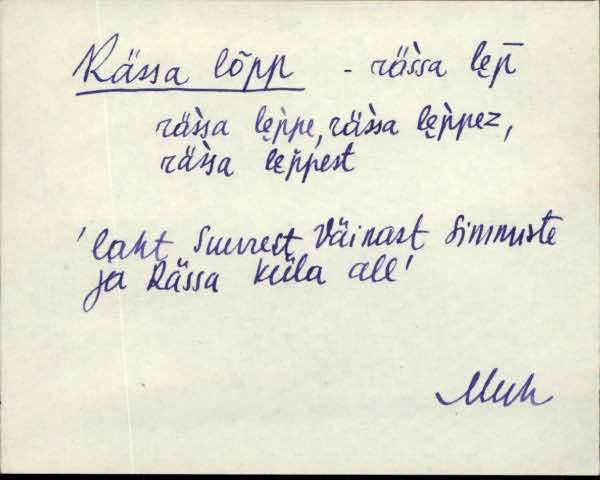 Rässa lõpp - räs̀sa lęp̄
räs̀sa lęp̀pe, räs̀sa lęp̀pez,
räs̀sa lęp̀pest
'laht Suurest Väinast Simmuste
ja Rässa küla all'
Muh